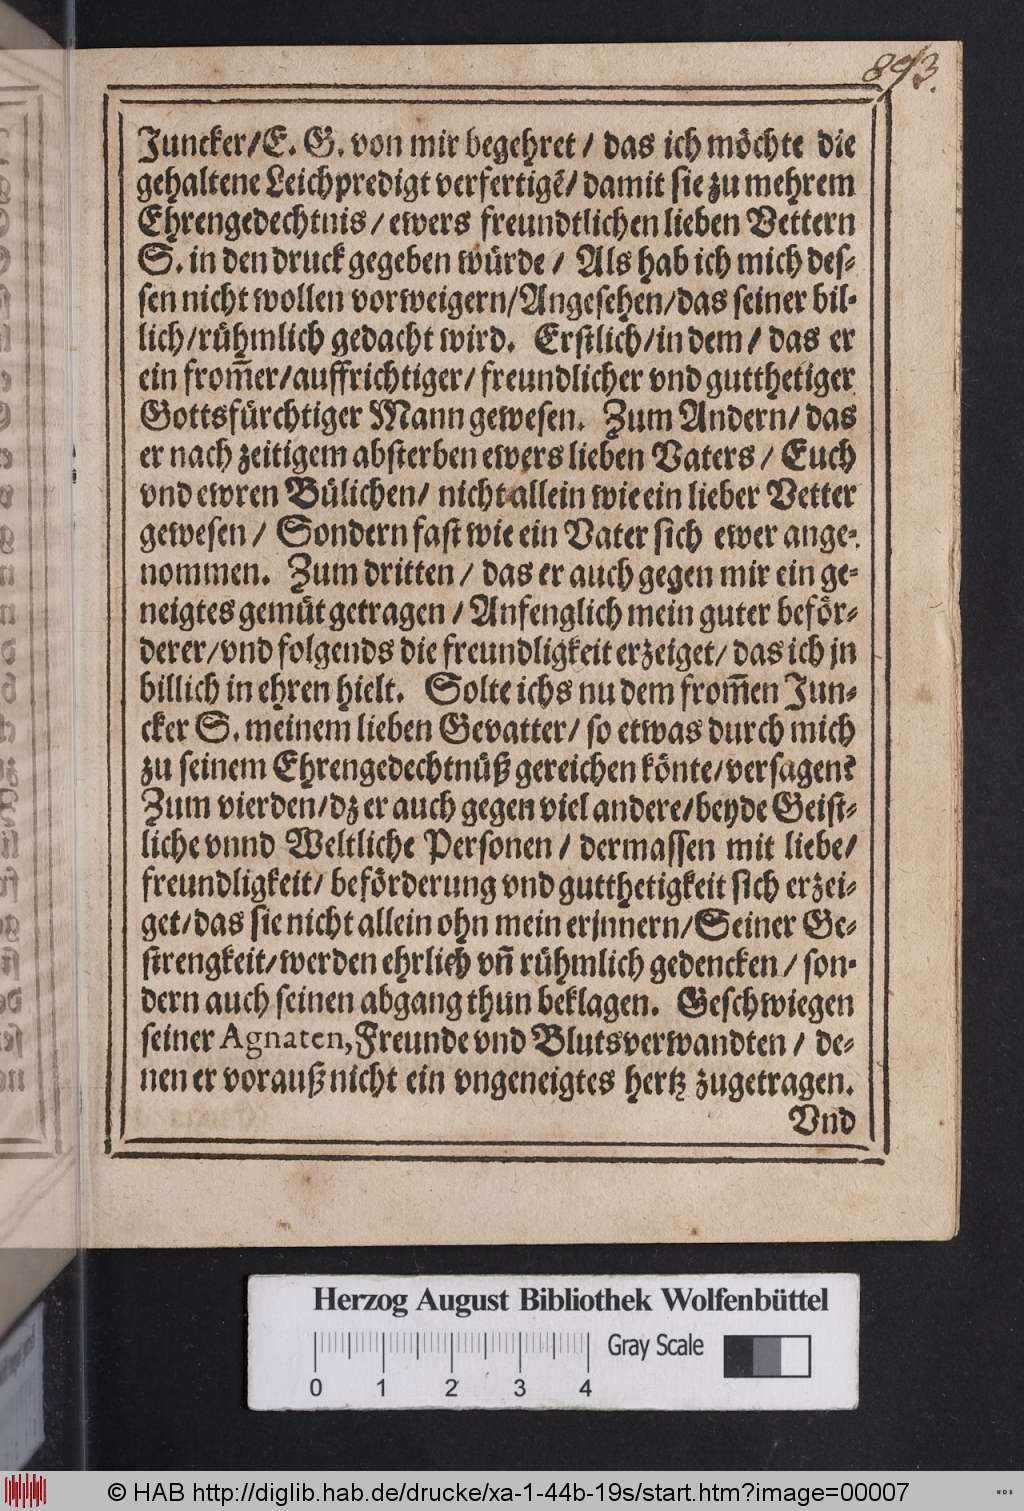 893.
Juncker/E. G. von mir begehret / das ich möchte die
gehaltene Leichpredigt verfertigẽ/ damit sie zu mehrem
Ehrengedechtnis/ ewers freundtlichen lieben Vettern
S. in den druck gegeben würde / Als hab ich mich des-
sen nicht wollen vorweigern/Angesehen/das seiner bil-
lich/rühmlich gedacht wird. Erstlich/in dem/ das er
ein from̃er/auffrichtiger/ freundlicher vnd gutthetiger
Gottsfürchtiger Mann gewesen. Zum Andern/ das
er nach zeitigem absterben ewers lieben Vaters / Euch
vnd ewren Bülichen/ nicht allein wie ein lieber Vetter
gewesen / Sondern fast wie ein Vater sich ewer ange-
nommen. Zum dritten / das er auch gegen mir ein ge-
neigtes gemüt getragen / Anfenglich mein guter beför-
derer/vnd folgends die freundligkeit erzeiget/ das ich jn
billich in ehren hielt. Solte ichs nu dem from̃en Jun-
cker S. meinem lieben Gevatter/ so etwas durch mich
zu seinem Ehrengedechtnüß gereichen könte/versagen?
Zum vierden/dz er auch gegen viel andere/beyde Geist-
liche vnnd Weltliche Personen / dermassen mit liebe/
freundligkeit/ beförderung vnd gutthetigkeit sich erzei-
get/das sie nicht allein ohn mein erjnnern/Seiner Ge-
strengkeit/werden ehrlich vñ rühmlich gedencken / son-
dern auch seinen abgang thun beklagen. Geschwiegen
seiner Agnaten,Freunde vnd Blutsverwandten / de-
nen er vorauß nicht ein vngeneigtes hertz zugetragen.
Vnd
Herzog August Bibliothek Wolfenbüttel
Gray Scale
0 1 2 3 4
© HAB http://diglib.hab.de/drucke/xa-1-44b-19s/start.htm?image=00007